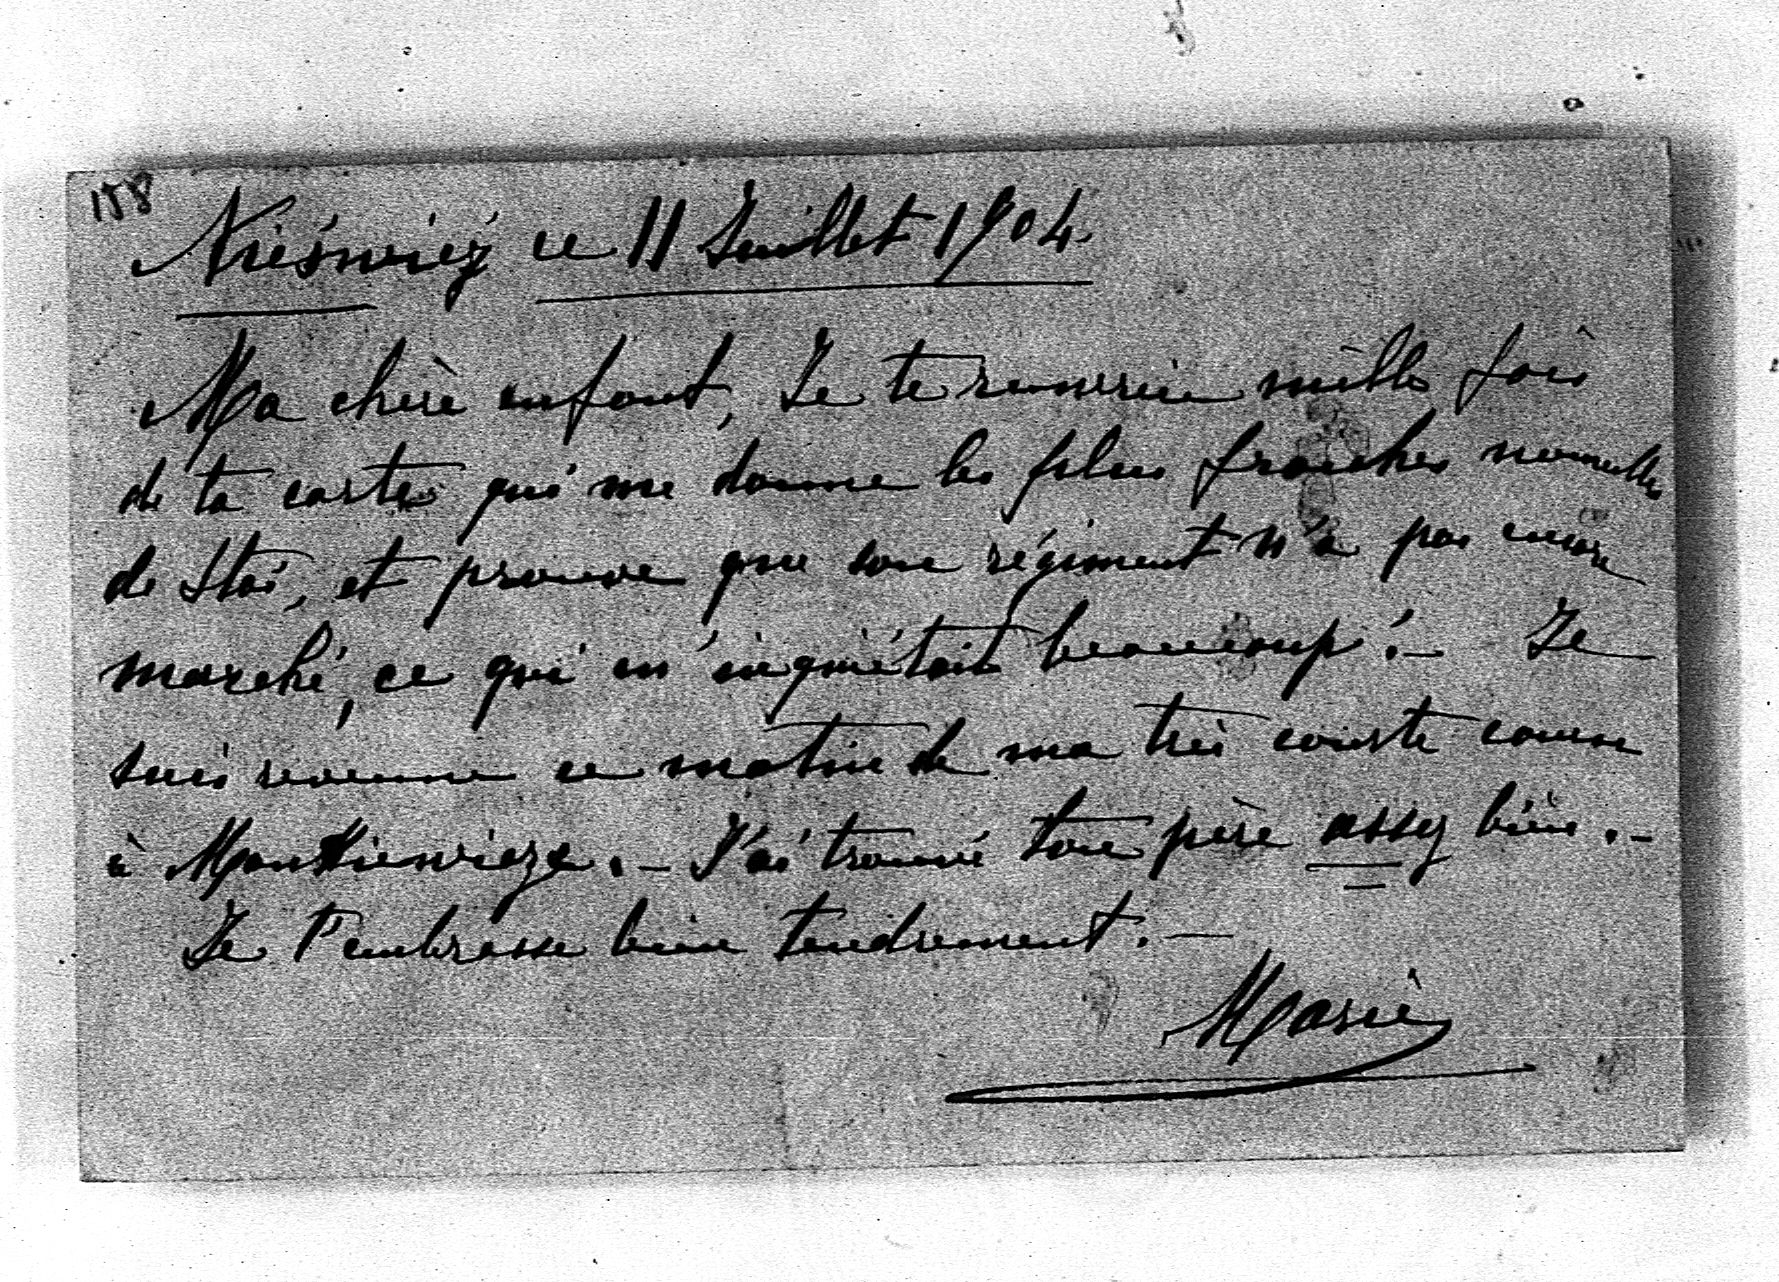 158
Nieśwież ce 11 Juillet 1904.
Ma chère enfant, Je te remercie mille fois
de ta carte qui me donne les plus fraiches nouvelles
de Staś, et prouve que son régiment n'a pas encore
marché, ce qui m'inquiétait beaucoup! – Je
suis revenue ce matin de ma très courte course
à Mankiewicze. – J'ai trouvé ton père assez bien. –
Je t'embrasse bien tendrement. –
Marie